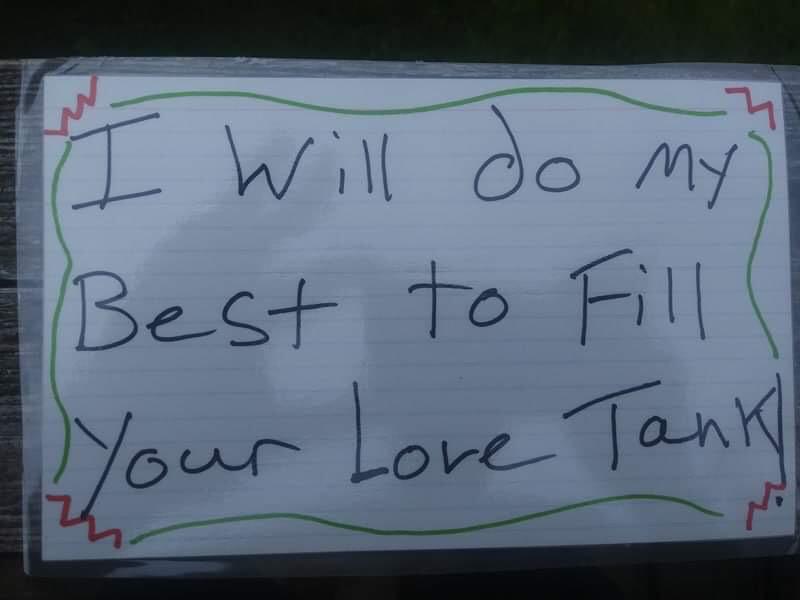 I Will do My
Best to Fill
Your Love Tank!